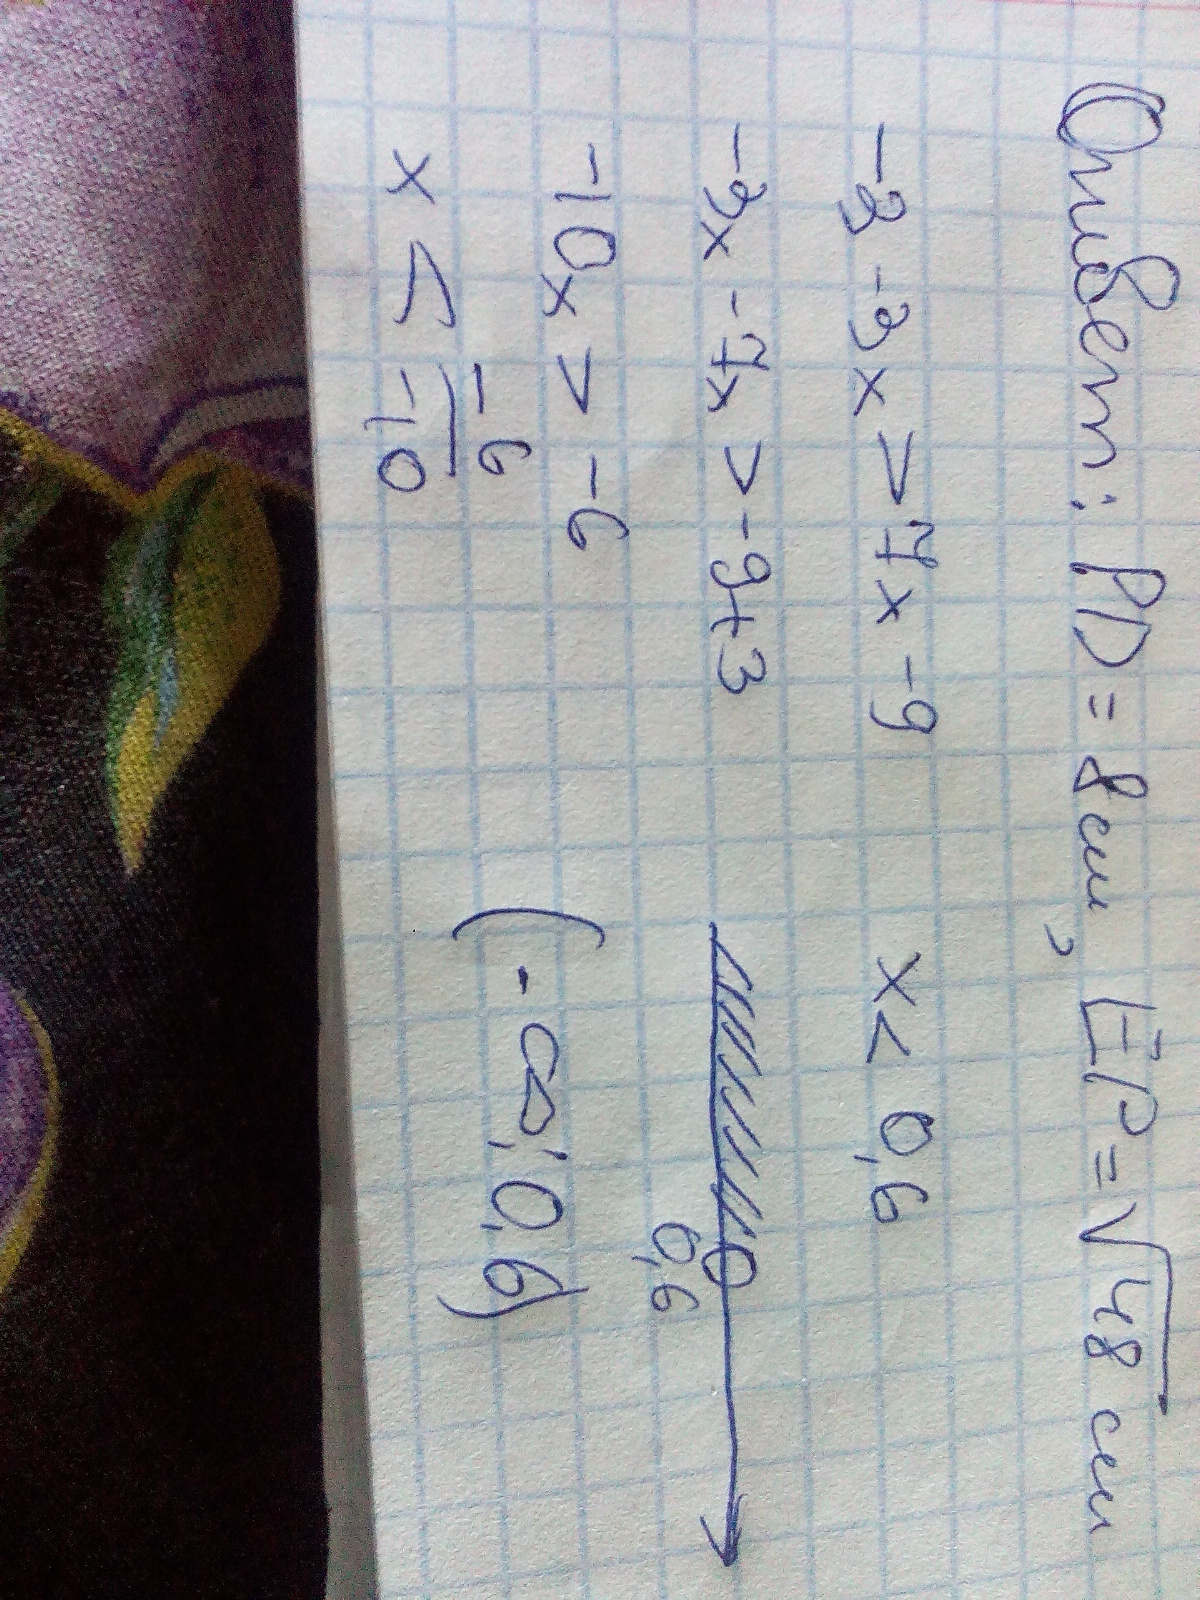 Ответ: PD = 8см, EP = √48 см
-3 -3x > 7x -9
-3x -7x > -9+3
-10x > -6
x < -6/-10
x < 0,6
0,6
(-∞; 0,6)